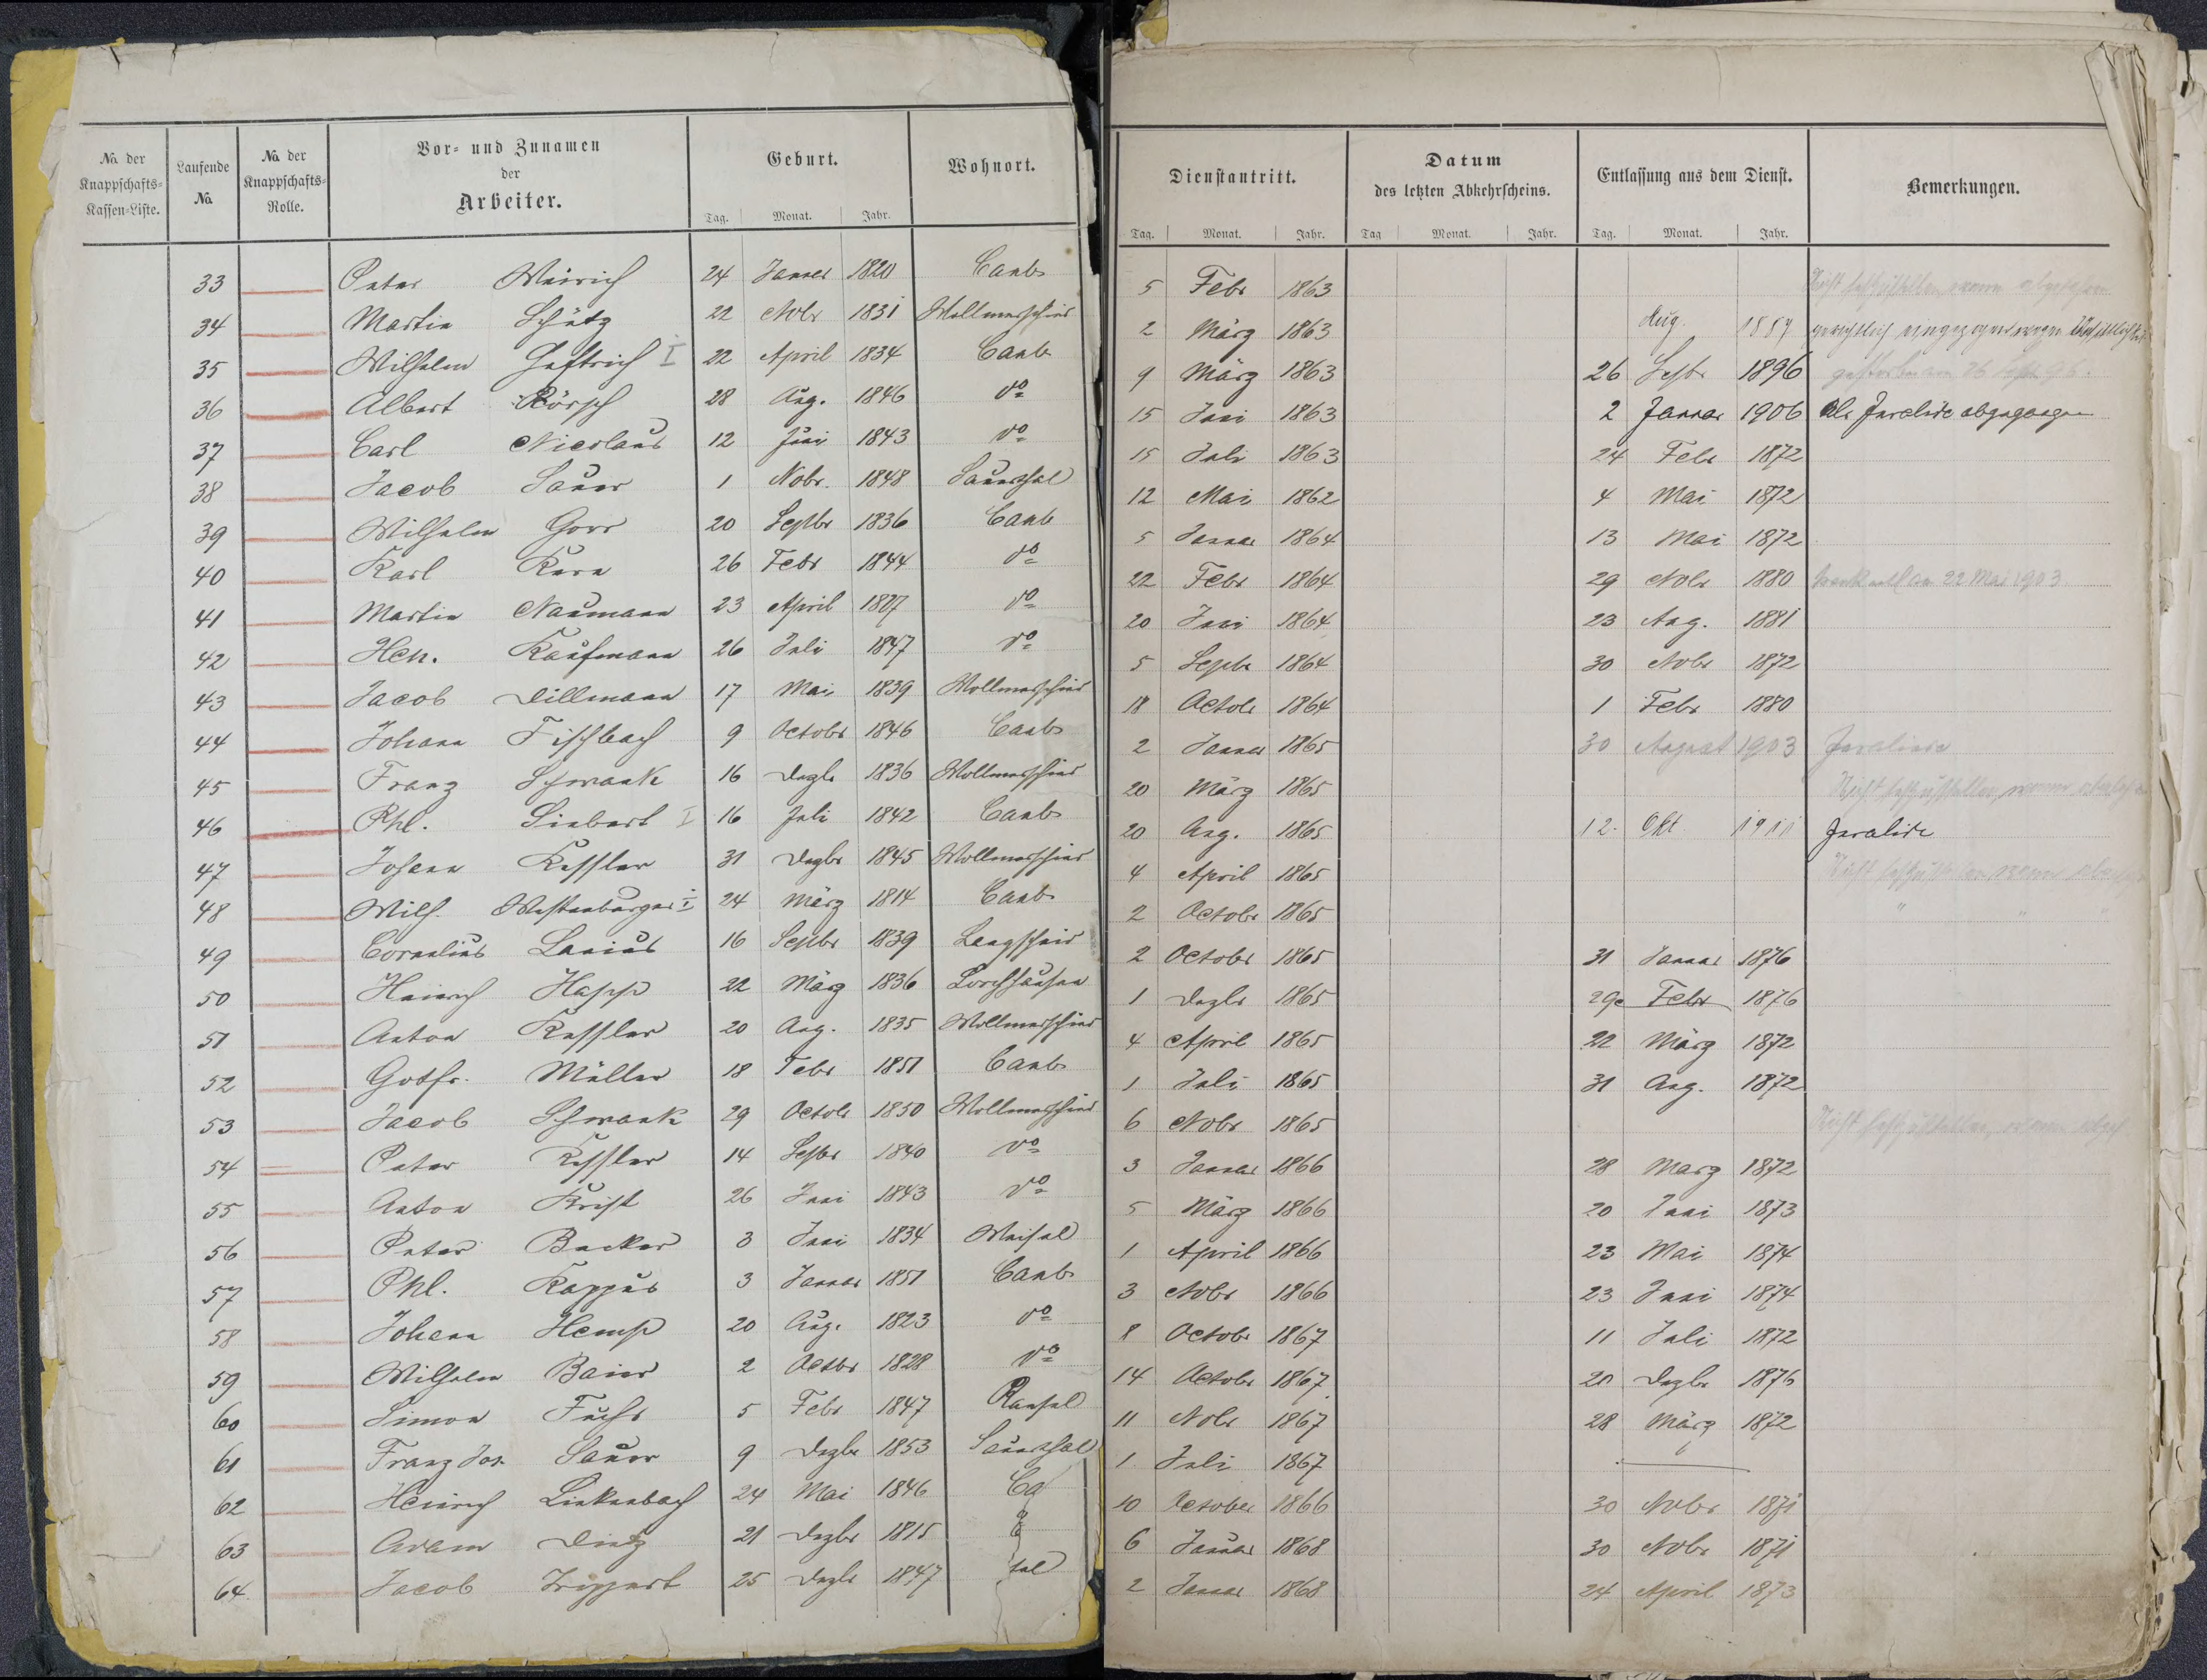 No. der Knappschafts-Kassen-Liste. Laufende No. No. der Knappschafts-Rolle. Vor- und Zunamen der Arbeiter. Geburt. Wohnort.
Tag. Monat. Jahr.
33 Peter Weirich 24 Januar 1820 Caub
34 Martin Schütz 22 Nobr 1831 Wollmerschied
35 Wilhelm Heftrich I 22 April 1834 Caub
36 Albert Rörsch 28 Aug. 1846 do
37 Carl Nicolaus 12 Juni 1843 do
38 Jacob Sauer 1 Nobr. 1848 Sauerthal
39 Wilhelm Gorr 20 Septbr 1836 Caub
40 Karl Kern 26 Febr 1844 do
41 Martin Naumann 23 April 1827 do
42 Hch. Kaufmann 26 Juli 1847 do
43 Jacob Dillmann 17 Mai 1839 Wollmerschied
44 Johann Fischbach 9 Octobr 1846 Caub
45 Franz Schwank 16 Dezbr 1836 Wollmerschied
46 Phl. Siebert I 16 Juli 1842 Caub
47 Johann Kessler 31 Dezbr 1845 Wollmerschied
48 Wilh. Westenburger I 24 März 1814 Caub
49 Cornelius Lanius 16 Septbr 1839 Langscheid
50 Heinrich Happ 22 März 1836 Lorchhausen
51 Anton Kessler 20 Aug. 1835 Wollmerschied
52 Gotfr. Müller 18 Febr 1851 Caub
53 Jacob Schwank 29 Octobr 1850 Wollmerschied
54 Peter Kessler 14 Septbr 1840 do
55 Anton Krist 26 Juni 1843 do
56 Peter Becker 3 Juni 1834 Weisel
57 Phl. Kappus 3 Januar 1851 Caub
58 Johann Hemp 20 Aug. 1823 do
59 Wilhelm Baier 2 Octbr 1828 do
60 Simon Fuchs 5 Febr 1847 Ransel
61 Franz Jos. Sauer 9 Dezbr 1853 Sauerthal
62 Heinrich Linkenbach 24 Mai 1846 Ca
63 Adam Dietz 21 Dezbr 1815
64 Jacob Trippert 25 Dezbr 1847
Dienstantritt. Datum des letzten Abkehrscheins. Entlassung aus dem Dienst. Bemerkungen.
Tag. Monat. Jahr. Tag Monat. Jahr. Tag. Monat. Jahr.
5 Febr 1863 Nicht festzustellen, wann abgefahren
2 März 1863 Aug. 1889 gerichtlich eingezogen wegen
9 März 1863 26 Septbr 1896 gestorben 26 Sept. 96.
15 Juni 1863 2 Januar 1906 Als Invalide abgegangen
15 Juli 1863 24 Febr 1872
12 Mai 1862 4 Mai 1872
5 Januar 1864 13 Mai 1872
22 Febr 1864 29 Nobr 1880 22 Mai 1903
20 Juni 1864 23 Aug. 1881
5 Septbr 1864 30 Nobr 1872
18 Octobr 1864 1 Febr 1880
2 Januar 1865 30 August 1903 Invalide
20 März 1865 Nicht festzustellen, wann
20 Aug. 1865 12. Okt. 1911 Invalide
4 April 1865 Nicht festzustellen wann
2 Octobr 1865 " " "
2 Octobr 1865 31 Januar 1876
1 Dezbr 1865 29 Febr 1876
4 April 1865 22 März 1872
1 Juli 1865 31 Aug. 1872
6 Nobr 1865 Nicht festzustellen, wann
3 Januar 1866 28 März 1872
5 März 1866 20 Juni 1873
1 April 1866 23 Mai 1874
3 Nobr 1866 23 Juni 1874
8 Octobr 1867 11 Juli 1872
14 Octobr 1867 20 Dezbr 1876
11 Nobr 1867 28 März 1872
1 Juli 1867
10 October 1866 30 Nobr 1871
6 Januar 1868 30 Nobr 1871
2 Januar 1868 24 April 1873